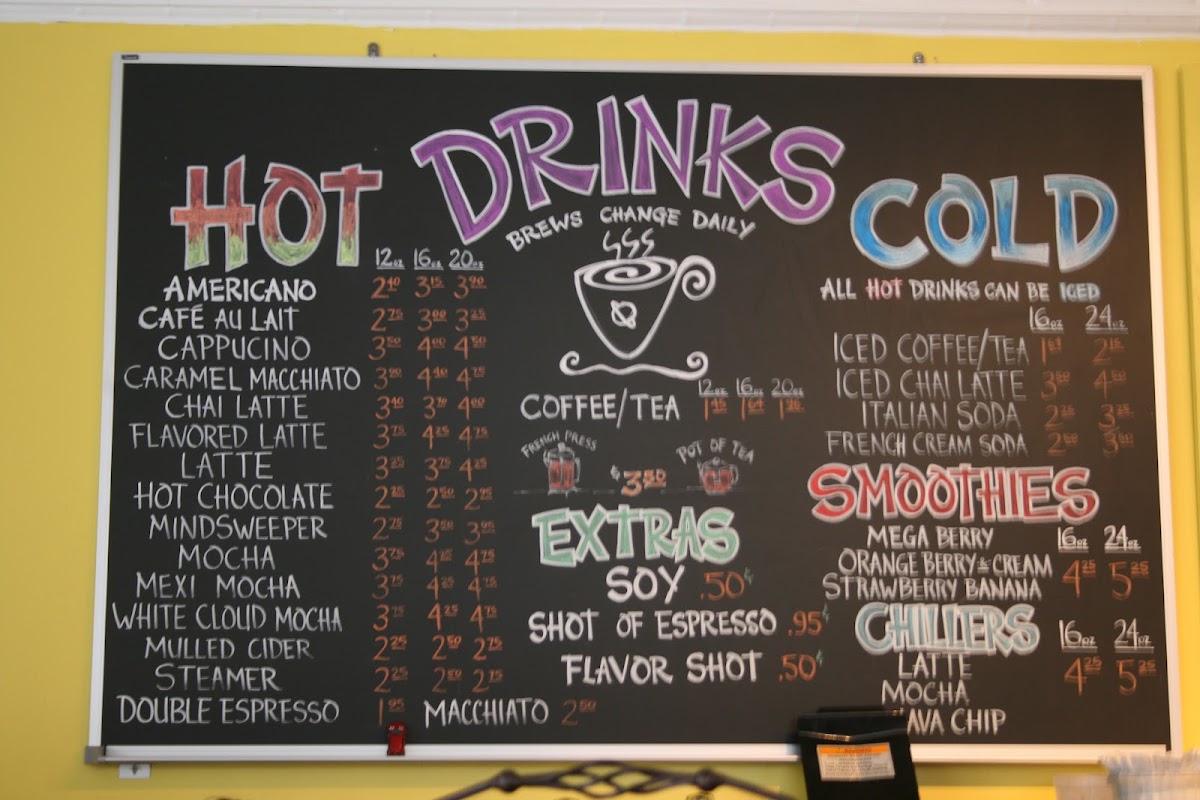 HOT DRINKS COLD
BREWS CHANGE DAILY
12oz 16oz 20oz
AMERICANO 2.40 3.15 3.90
CAFÉ AU LAIT 2.75 3.00 3.25
CAPPUCINO 3.50 4.00 4.50
CARAMEL MACCHIATO 3.90 4.40 4.75
CHAI LATTE 3.40 3.70 4.00
FLAVORED LATTE 3.75 4.25 4.75
LATTE 3.25 3.75 4.25
HOT CHOCOLATE 2.25 2.50 2.95
MINDSWEEPER 2.75 3.50 3.95
MOCHA 3.75 4.25 4.75
MEXI MOCHA 3.75 4.25 4.75
WHITE CLOUD MOCHA 3.75 4.25 4.75
MULLED CIDER 2.25 2.50 2.75
STEAMER 2.25 2.50 2.75
DOUBLE ESPRESSO 1.95 MACCHIATO 2.50
12oz 16oz 20oz
COFFEE/TEA 1.45 1.64
FRENCH PRESS $3.50 POT OF TEA
EXTRAS
SOY .50¢
SHOT OF ESPRESSO .95¢
FLAVOR SHOT .50¢
ALL HOT DRINKS CAN BE ICED
16oz 24oz
ICED COFFEE/TEA 2.15
ICED CHAI LATTE 3.50 4.50
ITALIAN SODA 2.25 3.25
FRENCH CREAM SODA
SMOOTHIES
16oz 24oz
MEGA BERRY
ORANGE BERRY & CREAM 4.25 5.25
STRAWBERRY BANANA
CHILLERS
16oz 24oz
LATTE 4.25 5.25
MOCHA
JAVA CHIP